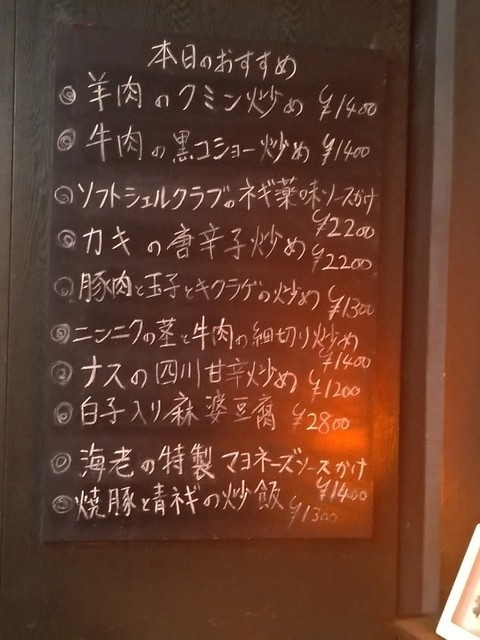 本日のおすすめ
◎ 羊肉のクミン炒め ¥1400
◎ 牛肉の黒コショー炒め ¥1400
◎ ソフトシェルクラブのネギ薬味ソースかけ
¥2200
◎ カキの唐辛子炒め ¥2200
◎ 豚肉と玉子とキクラゲの炒め ¥1300
◎ ニンニクの茎と牛肉の細切り炒め
¥1400
◎ ナスの四川甘辛炒め ¥1200
◎ 白子入り麻婆豆腐 ¥2800
◎ 海老の特製マヨネーズソースかけ
¥1400
◎ 焼豚と青ネギの炒飯 ¥1300